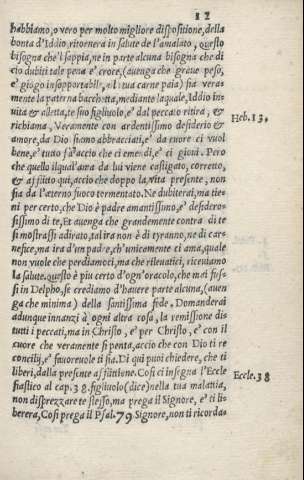 12
habbiamo, o vero per molto migliore dispositione, della
bontà d'Iddio, ritornerà in salute de l'amalato, questo
bisogna che'l sappia, ne in parte alcuna bisogna che di
ciò dubiti tale pena e' croce, (auenga che graue peso,
e' giogo insopportabile, a la tua carne paia) sia vera-
mente la paterna bacchetta, mediante laquale, Iddio in-
uita & alletta, te suo figliuolo, e' dal peccato ritira, &
richiama, Veramente con ardentissimo desiderio &
Heb. 13.
amore, da Dio siamo abbracciati, e' da cuore ci vuol
bene, e' tutto fà acciò che ci emendi, e' ci gioui. Però
che quello ilqual'ama da lui viene castigato, corretto,
& afflitto qui, acciò che doppo la vita presente, non
sia da l'aterno fuoco tormentato. Ne dubiterai, ma tie-
ni per certo, che Dio è padre amantissimo, e' desidero-
sissimo di te, Et auenga che grandemente contra di te
si mostrassi adirato, tal ira non è di tyranno, ne di car-
nefice, ma ira d'un padre, ch'unicamente ci ama, quale
non vuole che perdiamoci, ma che rileuatici, riceuiamo
la salute. questo è piu certo d'ogn'oracolo, che mai fus-
si in Delpho, se crediamo d'hauere parte alcuna, (auen
ga che minima) della santissima fide. Domanderai
adunque innanzi à ogni altra cosa, la remissione di
tutti i peccati, ma in Christo, e' per Christo, e' con il
cuore che veramente si penta, acciò che con Dio ti re
concilij, e' fauoreuole ti sia. Di qui puoi chiedere, che ti
liberi, dalla presente afflittione. Cosi ci insegna l'Eccle
Eccle. 38
siastico al cap. 38. figliuolo (dice) nella tua malattia,
non disprezzare te stesso, ma prega il Signore, e' ti li-
bererà, Cosi prega il Psal. 79 Signore, non ti ricorda-